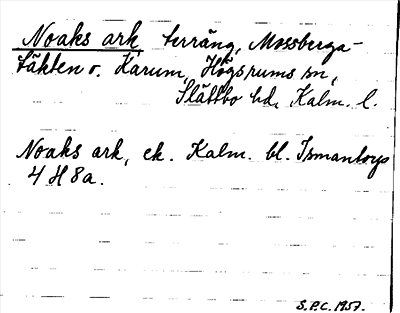 Noaks ark, terräng, Mossberga-
täkten o. Karum, Högsrums sn,
Slättbo hd, Kalm. l.
Noaks ark, ek. Kalm. bl. Ismantorp
4 H 8a.
S.P.C. 1957.